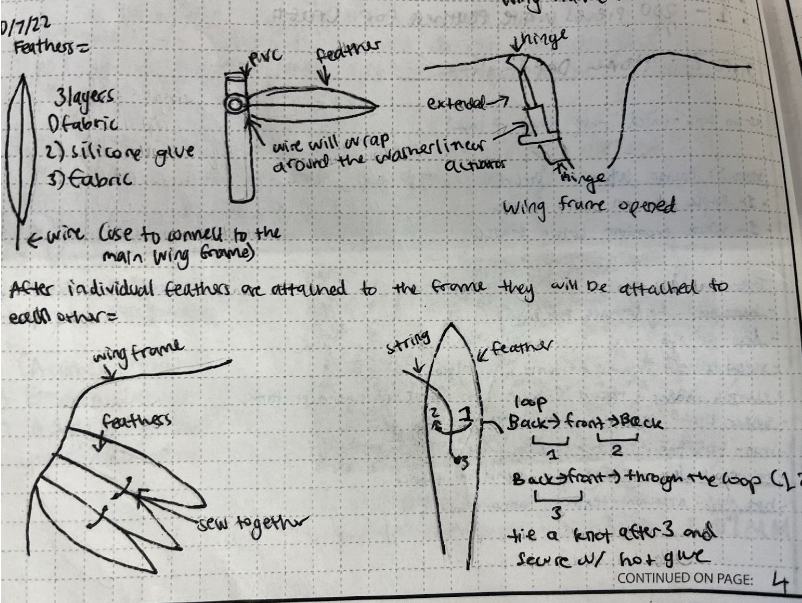 0/7/22
Feathers=
3 layers
1) fabric
2) silicone glue
3) fabric
← wire (use to connect to the
main wing frame)
PVC
feather
wire will wrap
around the washer
hinge
extended →
linear
actuator
hinge
wing frame opened
After individual feathers are attached to the frame they will be attached to
each other=
wing frame
feathers
sew together
string
feather
2 1
3
loop
Back → front → Back
1 2
Back → front → through the loop (1
3
tie a knot after 3 and
secure w/ hot glue
CONTINUED ON PAGE: 4